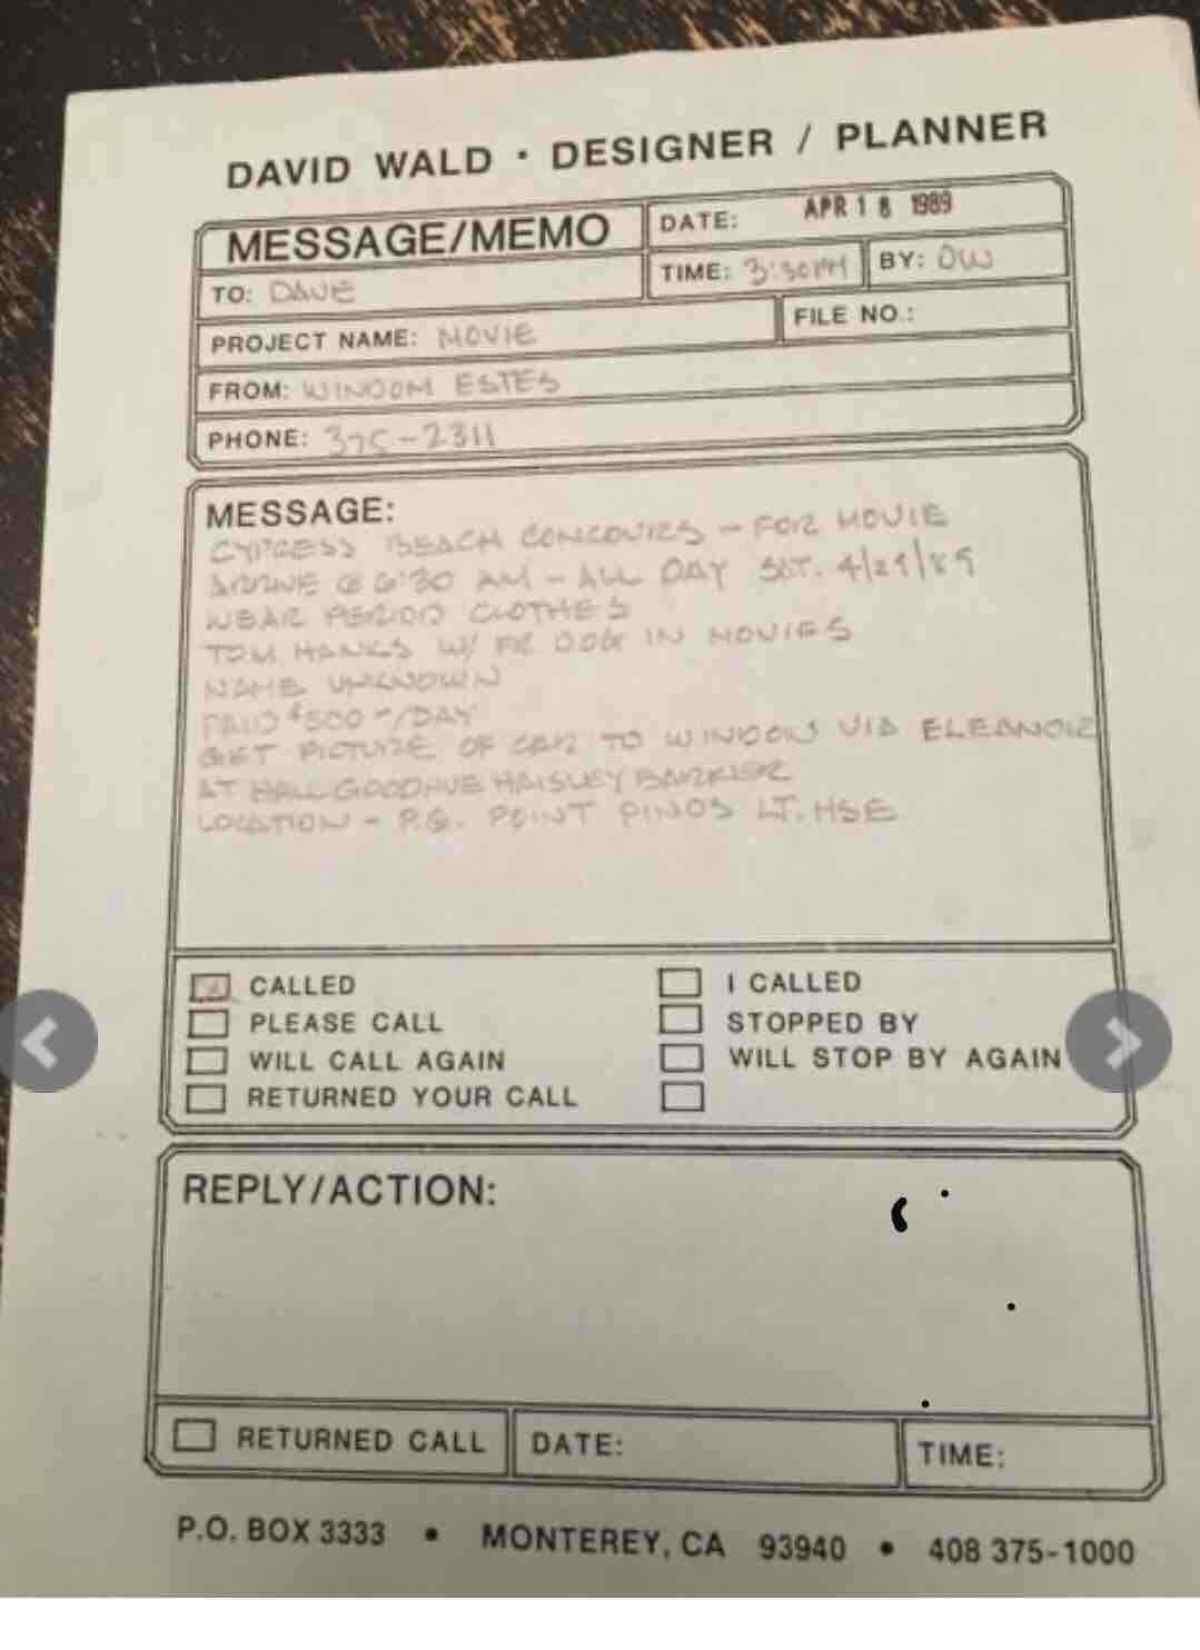 DAVID WALD • DESIGNER / PLANNER
MESSAGE/MEMO
DATE: APR 18 1989
TO: DAVE
TIME: 3:30 PM
BY: DW
PROJECT NAME: MOVIE
FILE NO.:
FROM: WINDOM ESTES
PHONE: 375-2311
MESSAGE:
CYPRESS BEACH CONCOURS - FOR MOVIE
ARRIVE @ 6:30 AM - ALL DAY SAT. 4/29/89
WEAR PERIOD CLOTHES
TOM HANKS W/ DOG IN MOVIES
NAME UNKNOWN
PAID $500 -/DAY
GET PICTURE OF CAR TO WINDOM VIA ELEANOR
AT HALL GOODHUE HAISLEY BARKER
LOCATION - P.G. POINT PINOS LT. HSE
CALLED
I CALLED
PLEASE CALL
STOPPED BY
WILL CALL AGAIN
WILL STOP BY AGAIN
RETURNED YOUR CALL
REPLY/ACTION:
RETURNED CALL
DATE:
TIME:
P.O. BOX 3333 • MONTEREY, CA 93940 • 408 375-1000